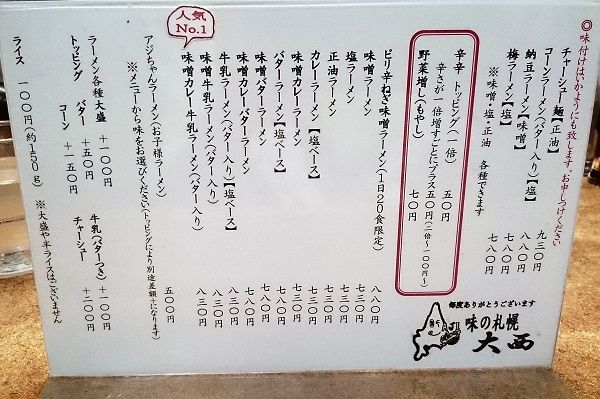 ◎味付けはいかようにも致します。お申しつけください
チャーシュー麺【正油】 九三〇円
コーンラーメン(バター入り)【塩】 八八〇円
納豆ラーメン【味噌】 七八〇円
梅ラーメン【塩】 七八〇円
※味噌・塩・正油 各種できます
辛辛 トッピング(一倍) 五〇円
辛さが一倍増すごとにプラス五〇円(二倍~一〇〇円~)
野菜増し(もやし) 七〇円
ピリ辛ねぎ味噌ラーメン(1日20食限定) 八八〇円
味噌ラーメン 七三〇円
塩ラーメン 七三〇円
正油ラーメン 七三〇円
カレーラーメン【塩ベース】 七八〇円
味噌カレーラーメン 七八〇円
バターラーメン【塩ベース】 七八〇円
味噌バターラーメン 七八〇円
味噌カレーバターラーメン 八三〇円
牛乳ラーメン(バター入り)【塩ベース】 七八〇円
味噌牛乳ラーメン(バター入り) 八三〇円
人気
No.1
味噌カレー牛乳ラーメン(バター入り) 八三〇円
アジちゃんラーメン(お子様ラーメン) 五〇〇円
※メニューから味をお選びください(トッピングにより別途差額+になります)
ラーメン各種大盛 +一〇〇円
トッピング バター +五〇円 牛乳(バターつき) +一〇〇円
コーン +一五〇円 チャーシュー +二〇〇円
ライス 一〇〇円(約150g) ※大盛や半ライスはございません
毎度ありがとうございます
味の札幌
大西